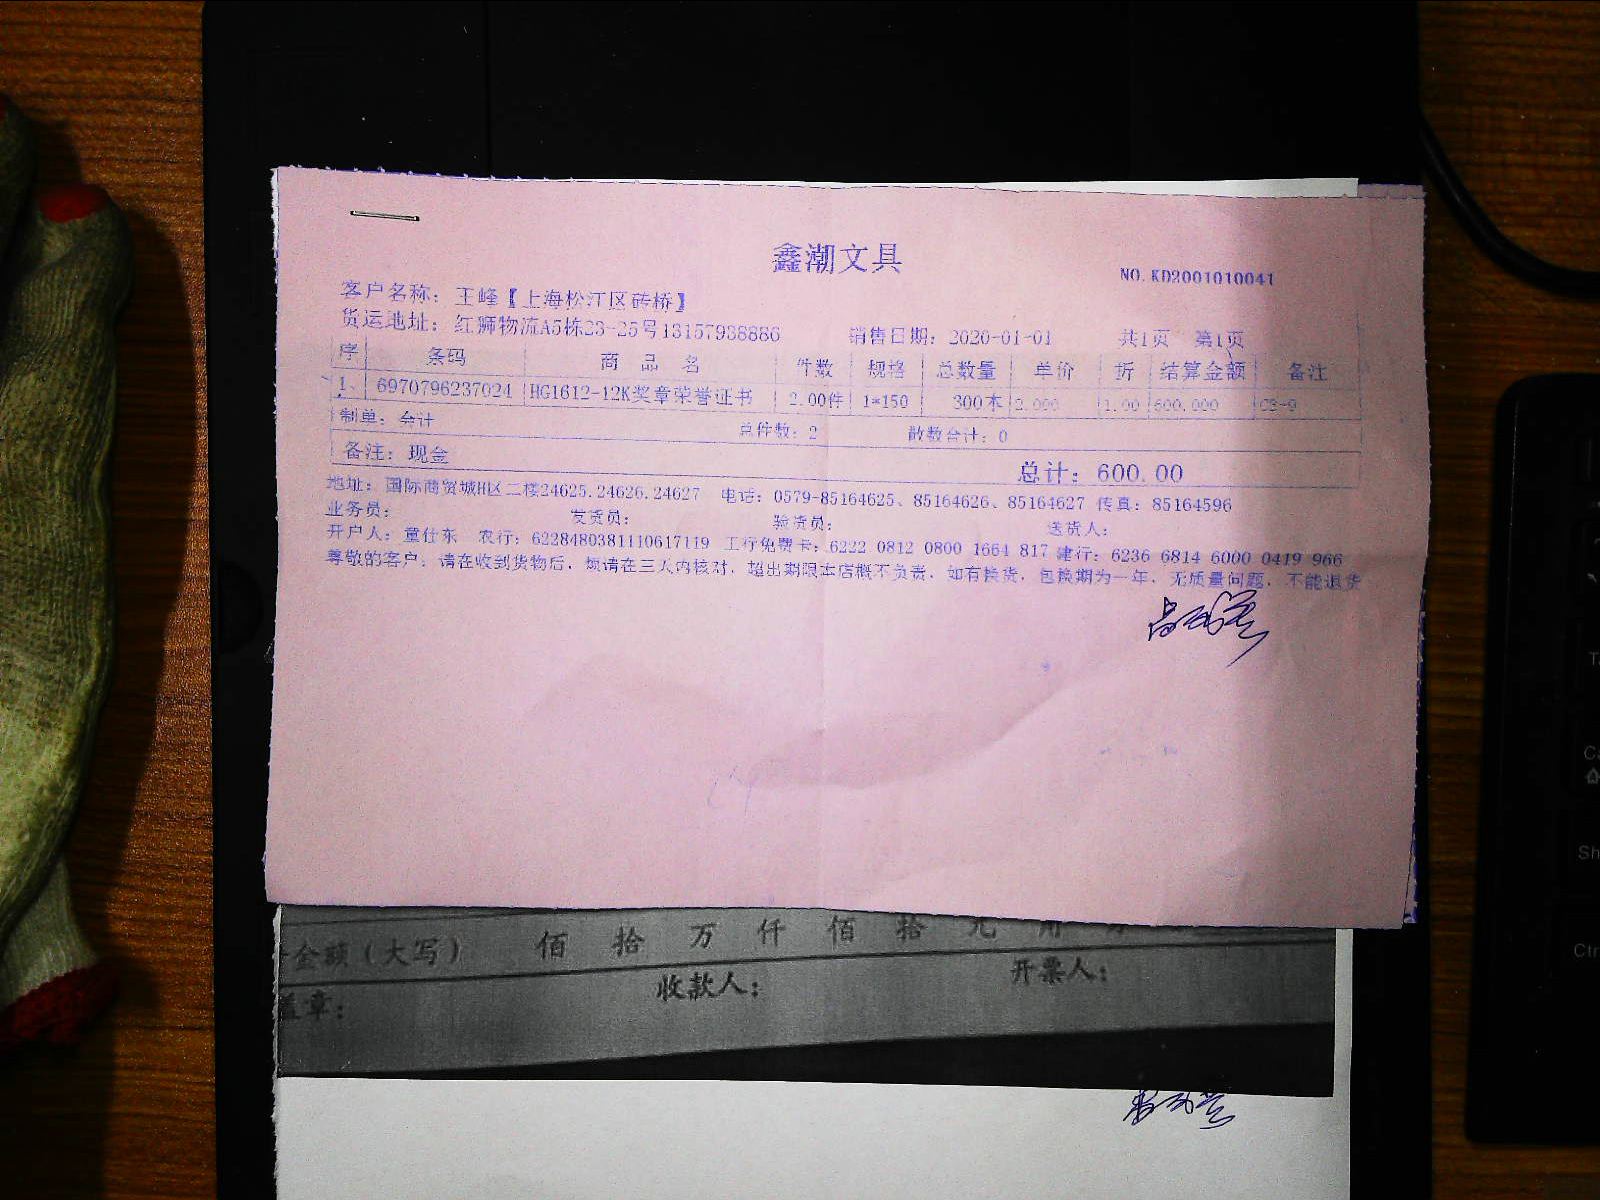 鑫潮文具
NO.KD2001010041
客户名称：王峰【上海松江区砖桥】
货运地址：红狮物流A5栋23-25号13157938886 销售日期：2020-01-01 共1页 第1页
序 条码 商品名 件数 规格 总数量 单价 折 结算金额 备注
1、 6970796237024 HG1612-12K奖章荣誉证书 2.00件 1*150 300本 2.000 1.00 600.000 C3-9
制单：会计 总件数：2 散数合计：0
备注：现金 总计：600.00
地址：国际商贸城H区二楼24625.24626.24627 电话：0579-85164625、85164626、85164627 传真：85164596
业务员： 发货员： 验货员： 送货人：
开户人：童仕东 农行：6228480381110617119 工行免费卡：6222 0812 0800 1664 817 建行：6236 6814 6000 0419 966
尊敬的客户：请在收到货物后，烦请在三天内核对，超出期限本店概不负责，如有换货，包换期为一年，无质量问题，不能退货
金额（大写） 佰 拾 万 仟 佰 拾 元 角
盖章： 收款人： 开票人：
Ctr